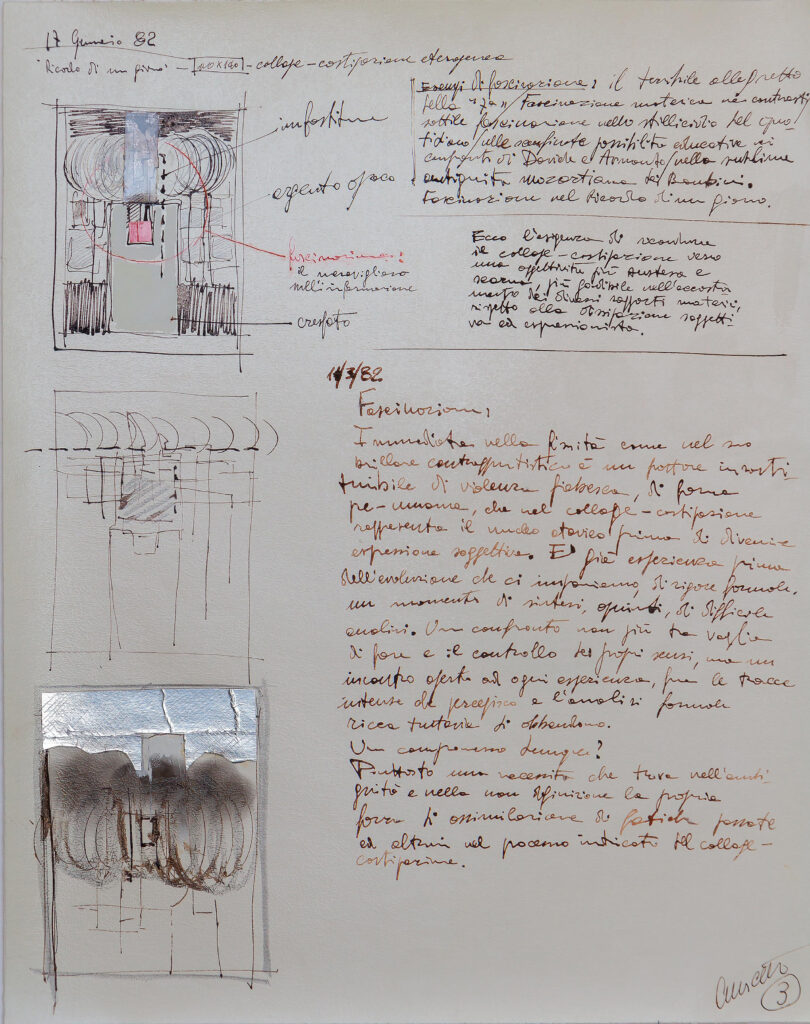 17 Gennaio 82
"Ricordo di un giorno" - - collage - costipazione eterogenea
Esempi di fascinazione: il terribile allegretto
della "7a" / Fascinazione materica nei contrasti
sottile fascinazione nello stillicidio del quo-
tidiano / nelle sconfinate possibilità educative nei
confronti di Davide e Armando / nella sublime
antiquità mozartiana dei Bambini.
Fascinazione nel Ricordo di un giorno.
imbastitura
argento opaco
fascinazione:
il meraviglioso
nell'informazione
crespato
Ecco l'esigenza di
il collage-costipazione verso
una oggettività più austera e
scarna, più godibile nell'accosta
mento dei diversi rapporti materici,
rispetto alla soggetti-
va ed espressionista.
11/3/82
Fascinazione:
Immediata nella fissità come nel suo
brillare contrappuntistico è un fattore insosti-
tuibile di violenza fiabesca, di forma
pre-umana, che nel collage-costipazione
rappresenta il nucleo atavico prima di divenire
espressione soggettiva. E' già esperienza prima
dell'evoluzione che ci imponiamo, di rigore formale,
un momento di sintesi, quindi, di difficile
analisi. Un confronto non più tra voglia
di fare e il controllo dei propri sensi, ma un
incontro aperto ad ogni esperienza, fra le tracce
intense del e l'analisi formale
ricca tuttavia di abbandono.
Un compromesso dunque?
Piuttosto una necessità che trova nell'ambi
guità e nella non definizione la propria
forza di assimilazione di fatiche passate
ed altrui nel processo indicato del collage-
costipazione.
3